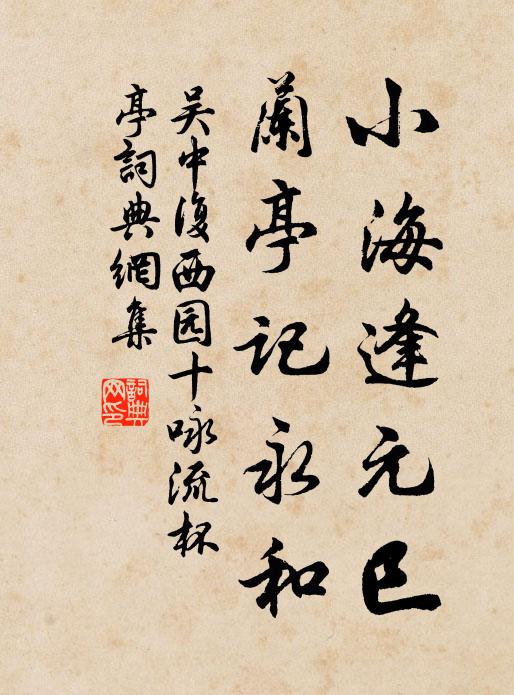 小海逢元巳
蘭亭記永和
吴中復西园十咏流杯
亭詞典網集
詞典網印